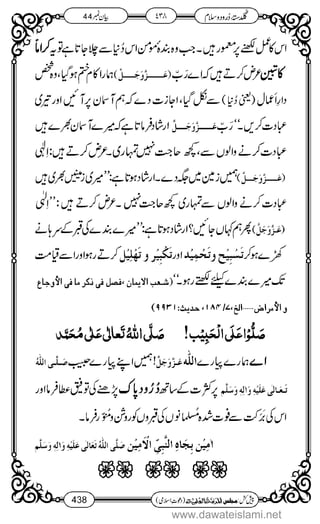 گلدستۂ درود و سلام ٤٣٨ بیان نمبر 44
اس کا عمل لکھنے پر معمور ہیں۔ جب وہ بندہ مومن اس دُنیا سے چلا جاتا ہے تو یہ کراماً
کاتبین عرض کرتے ہیں کہ اے ربّ (عَزَّوَجَلَّ) ہمارا کام ختم ہوگیا، وہ شخص
دارِ اعمال (یعنی دُنیا) سے نکل گیا، اجازت دے کہ ہم آسمان پر آئیں اور تیری
عبادت کریں۔‘‘ ربّ عَزَّوَجَلَّ ارشاد فرماتا ہے کہ میرے آسمان بھرے ہیں
عبادت کرنے والوں سے، کچھ حاجت نہیں تمہاری۔ عرض کرتے ہیں: الٰہی!
(عَزَّوَجَلَّ) ہمیں زمین میں جگہ دے۔ ارشاد ہوتا ہے: ’’میری زمینیں بھری ہیں
عبادت کرنے والوں سے تمہاری کچھ حاجت نہیں۔ عرض کرتے ہیں: ’’الٰہی!
(عَزَّوَجَلَّ) پھر ہم کہاں جائیں؟ ارشاد ہوتا ہے: ’’میرے بندے کی قبر کے سرہانے
کھڑے ہوکر تَسْبِیْح وَتَحْمِیْد اور تَکْبِیْر وَ تَھْلِیْل کرتے رہو اور اسے قیامت
تک میرے بندے کیلئے لکھتے رہو۔‘‘ (شعب الایمان ،فصل فی ذکر ما فی الأوجاع
و الأمراض ....الخ، ۱۸٤/۷، حدیث: ۹۹۳۱)
صَلُّوْا عَلَی الْحَبِیْب! صَلَّی اللّٰهُ تَعَالٰی عَلٰی مُحَمَّد
اے ہمارے پیارے اللّٰه عَزَّوَجَلَّ! ہمیں اپنے پیارے حبیب صَلَّی اللّٰهُ
تَعَالٰی عَلَیْهِ وَاٰلِهٖ وَسَلَّم پر کثرت کے ساتھ دُرُودِ پاک پڑھنے کی توفیق عطا فرما اور
اس کی بَرَکت سے فوت شدہ مسلمانوں کی قبروں کو روشن و مُنوَّر فرما۔
اٰمِیْن بِجَاهِ النَّبِیِّ الْاَمِیْن صَلَّی اللّٰهُ تَعَالٰی عَلَیْهِ وَاٰلِهٖ وَسَلَّم
438
www.dawateislami.net